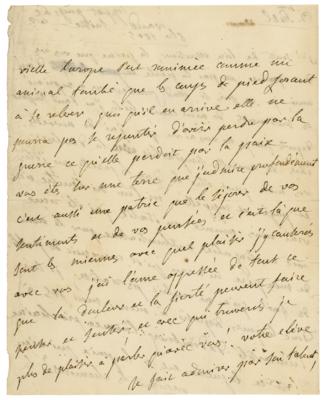 vieille Europe s'est ranimée comme un
animal tombé que le coups de pied forcent
à se relever quoi qu'il en arrive elle ne
pourra pas se repentir d'avoir perdu par la
guerre ce qu'elle perdoit par la paix
vous êtes sur une terre que j'admire profondément
c'est aussi une patrie que le séjour de vos
sentiments et de vos pensées et c'est là que
sont les miennes avec quel plaisir j'y causerois
avec vous j'ai l'ame oppressée de tout ce
que la douleur et la fierté peuvent faire
penser et sentir et avec qui trouverois je
plus de plaisir à parler qu'avec vous! votre élève
se fait admirer par son talent,